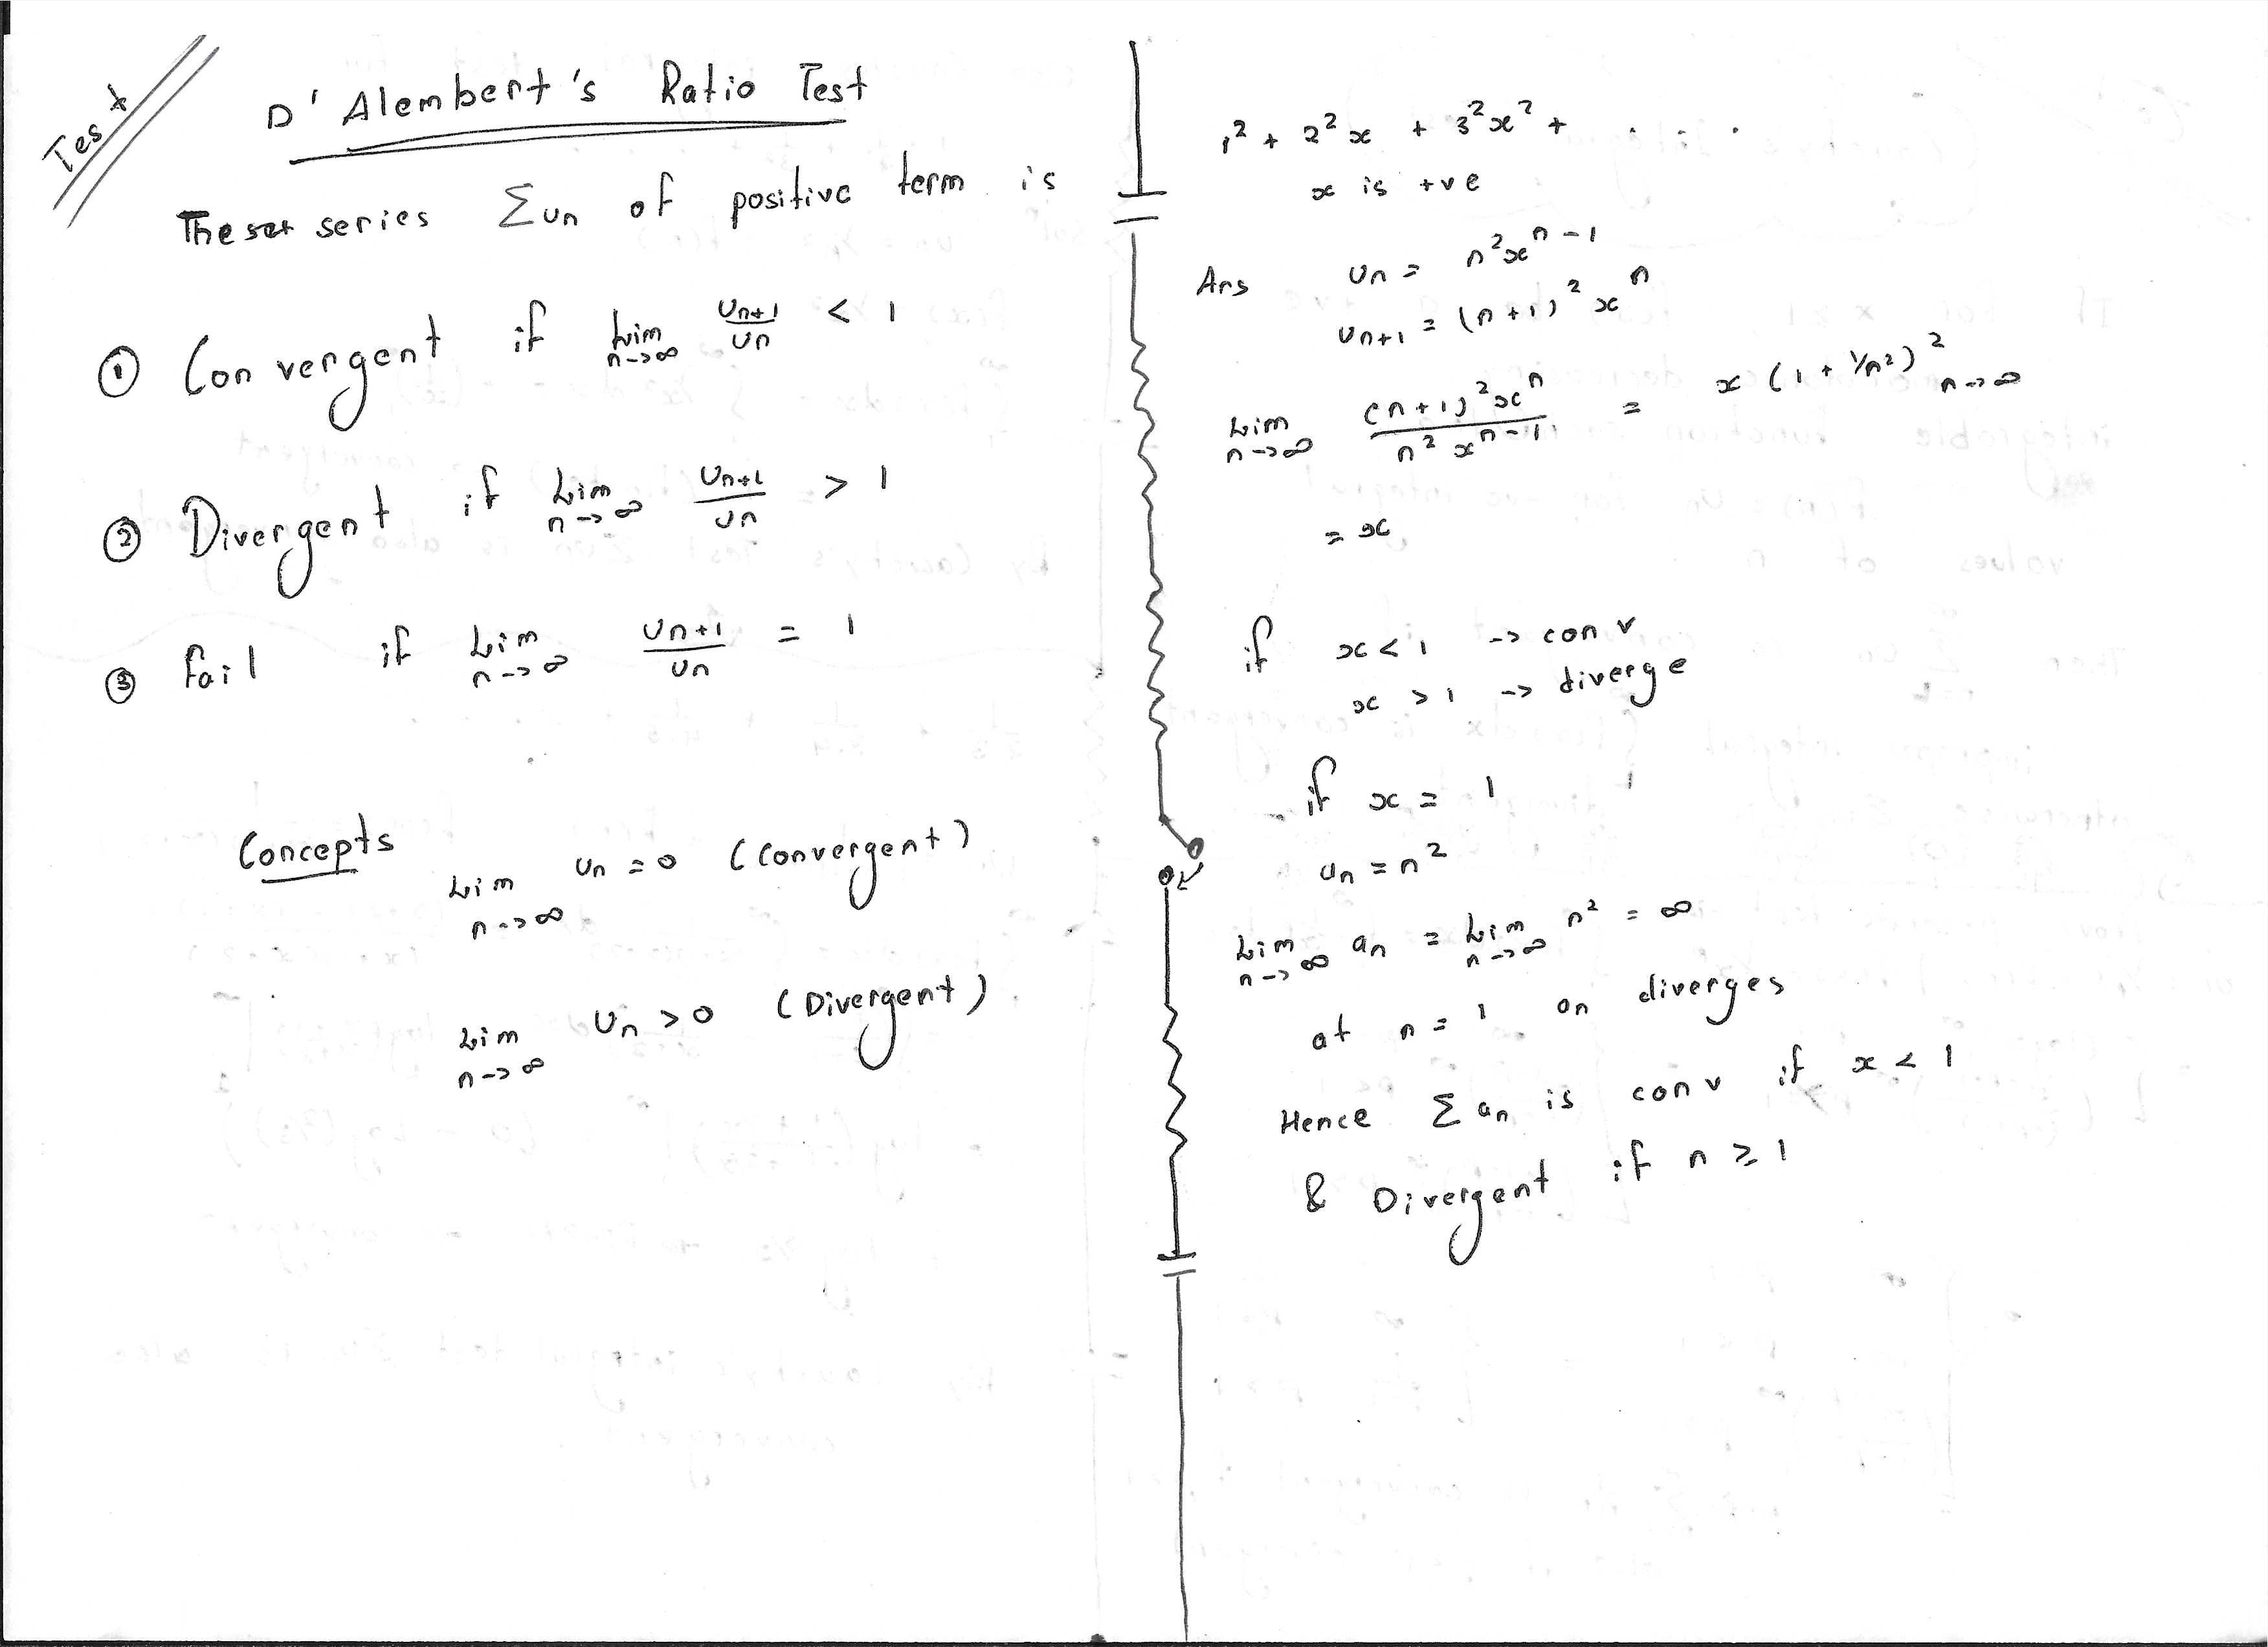 Test
D' Alembert's Ratio Test
The series Σun of positive term is
① Convergent if Lim n->∞ Un+1/Un < 1
② Divergent if Lim n->∞ Un+1/Un > 1
③ fail if Lim n->∞ Un+1/Un = 1
Concepts
Lim n->∞ Un = 0 (Convergent)
Lim n->∞ Un > 0 (Divergent)
1² + 2²x + 3²x² + . . . .
x is +ve
Ans Un = n²x^n-1
Un+1 = (n+1)² x^n
Lim n->∞ (n+1)²x^n / n² x^n-1 = x (1 + 1/n²)² n->∞
= x
if x < 1 -> conv
x > 1 -> diverge
if x = 1
Un = n²
Lim n->∞ an = Lim n->∞ n² = ∞
at n = 1 an diverges
Hence Σ an is conv if x < 1
& Divergent if n ≥ 1